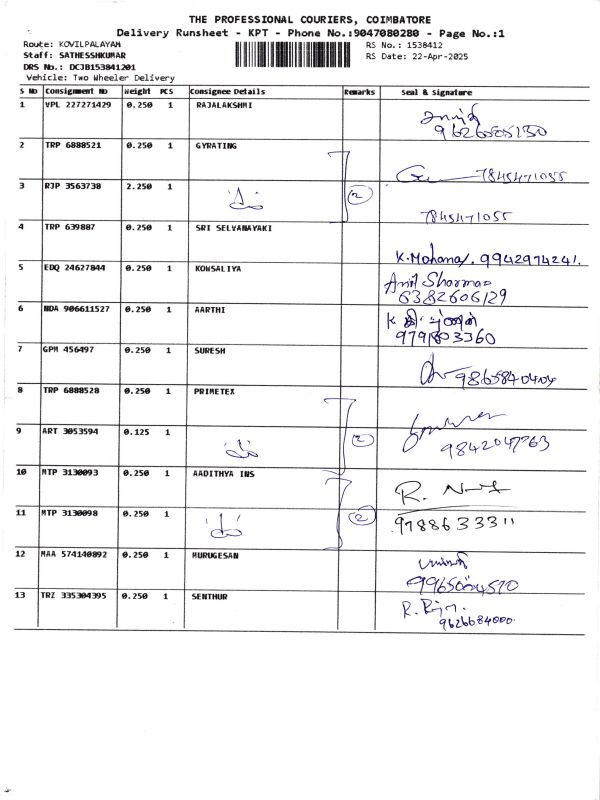 THE PROFESSIONAL COURIERS, COIMBATORE
Delivery Runsheet - KPT - Phone No.:9047080280 - Page No.:1
Route: KOVILPALAYAM RS No.: 1538412
Staff: SATHESSHKUMAR RS Date: 22-Apr-2025
DRS No.: DCJB153841201
Vehicle: Two Wheeler Delivery
S No Consignment No Weight PCS Consignee Details Remarks Seal & Signature
1 VPL 227271429 0.250 1 RAJALAKSHMI
2 TRP 6888521 0.250 1 GYRATING 7845471055
3 RJP 3563738 2.250 1 2 7845471055
4 TRP 639887 0.250 1 SRI SELVANAYAKI K. Mohana 9942974241.
5 EDQ 24627844 0.250 1 KOWSALIYA Anil Sharma
6382606129
6 NDA 906611527 0.250 1 AARTHI K.
9791803360
7 GPM 456497 0.250 1 SURESH 9865840404
8 TRP 6888528 0.250 1 PRIMETEX
9 ART 3053594 0.125 1 2 9842047763
10 MTP 3130093 0.250 1 AADITHYA INS R.
11 MTP 3130098 0.250 1 2 9788633311
12 MAA 574140892 0.250 1 MURUGESAN
13 TRZ 335304395 0.250 1 SENTHUR R.
9626684000